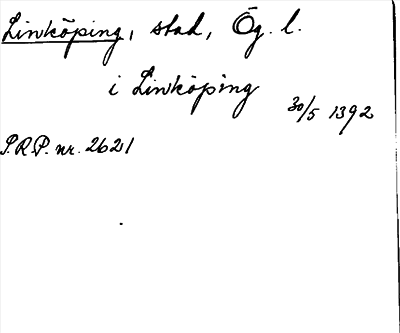 Linköping, stad, Ög. l.
i Linköping
30/5 1392
S.R.P. nr. 2621